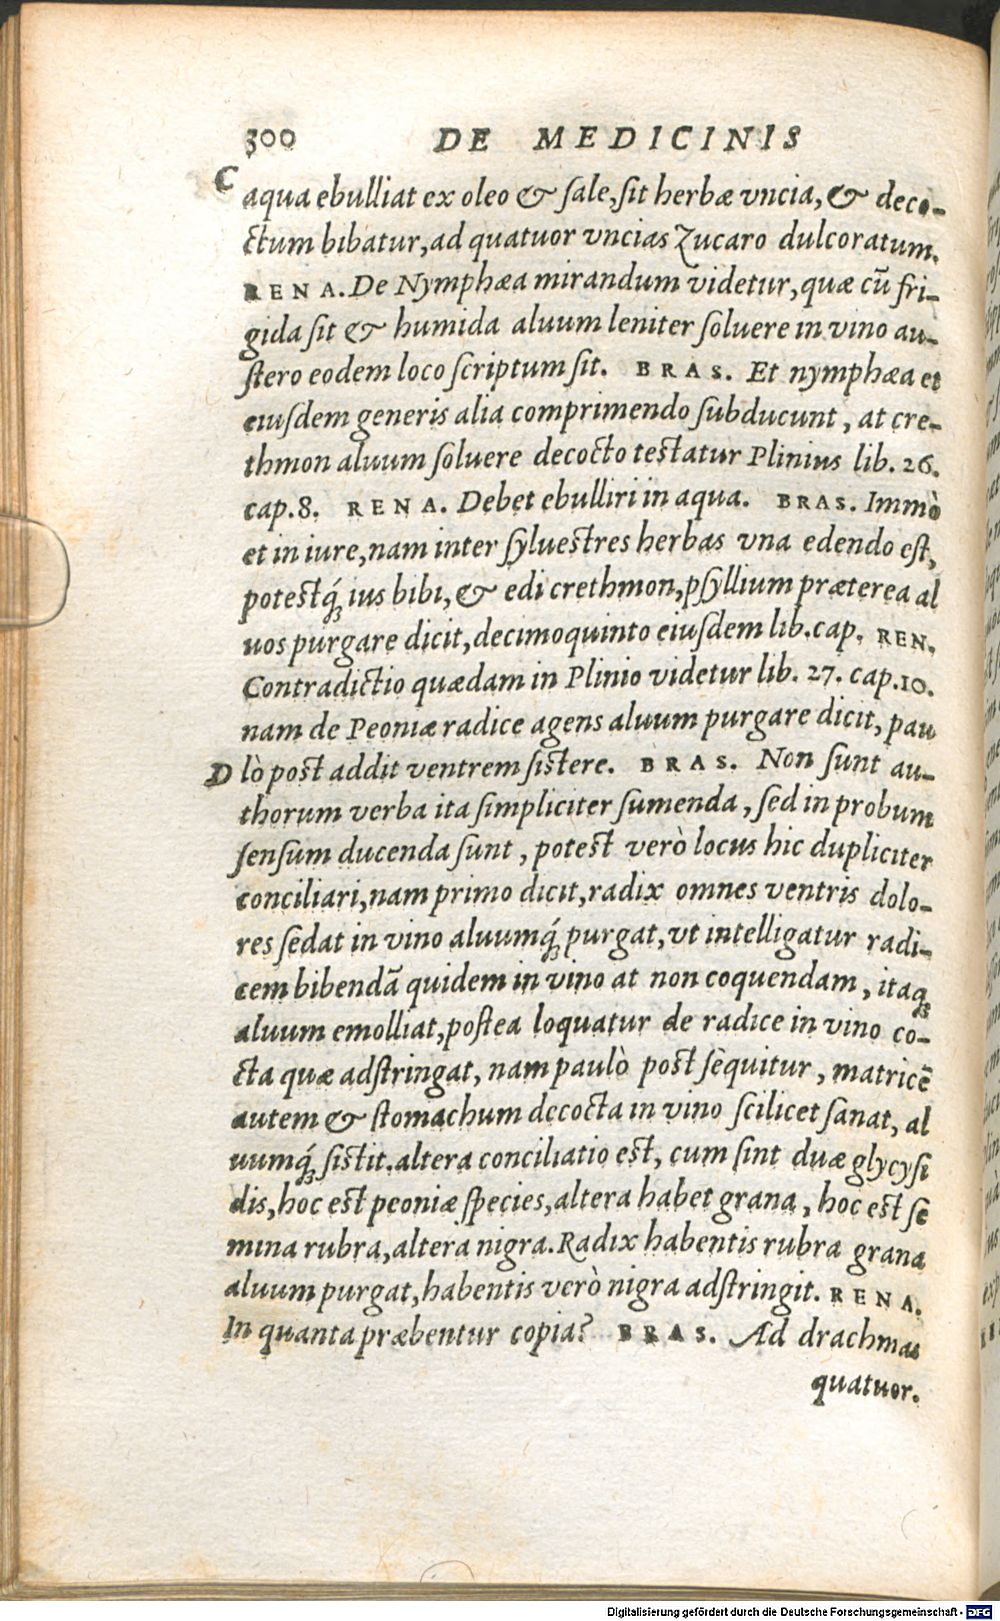 300 DE MEDICINIS
C aqua ebulliat ex oleo & sale, sit herbæ vncia, & deco-
ctum bibatur, ad quatuor vncias Zucaro dulcoratum.
RENA. De Nymphæa mirandum videtur, quæ cū fri-
gida sit & humida aluum leniter soluere in vino au-
stero eodem loco scriptum sit. BRAS. Et nymphæa et
eiusdem generis alia comprimendo subducunt, at cre-
thmon aluum soluere decocto testatur Plinius lib. 26.
cap. 8. RENA. Debet ebulliri in aqua. BRAS. Immò
et in iure, nam inter syluestres herbas vna edendo est,
potestq́; ius bibi, & edi crethmon, psyllium præterea al
uos purgare dicit, decimoquinto eiusdem lib. cap. REN.
Contradictio quædam in Plinio videtur lib. 27. cap. 10.
nam de Peoniæ radice agens aluum purgare dicit, pau
D lò post addit ventrem sistere. BRAS. Non sunt au-
thorum verba ita simpliciter sumenda, sed in probum
sensum ducenda sunt, potest verò locus hic dupliciter
conciliari, nam primo dicit, radix omnes ventris dolo-
res sedat in vino aluumq́; purgat, vt intelligatur radi-
cem bibendā quidem in vino at non coquendam, itaq;
aluum emolliat, postea loquatur de radice in vino co-
cta quæ adstringat, nam paulò post sequitur, matricē
autem & stomachum decocta in vino scilicet sanat, al
uumq́; sistit. altera conciliatio est, cum sint duæ glycysi
dis, hoc est peoniæ species, altera habet grana, hoc est se
mina rubra, altera nigra. Radix habentis rubra grana
aluum purgat, habentis verò nigra adstringit. RENA.
In quanta præbentur copia? BRAS. Ad drachmas
quatuor.
Digitalisierung gefördert durch die Deutsche Forschungsgemeinschaft - DFG